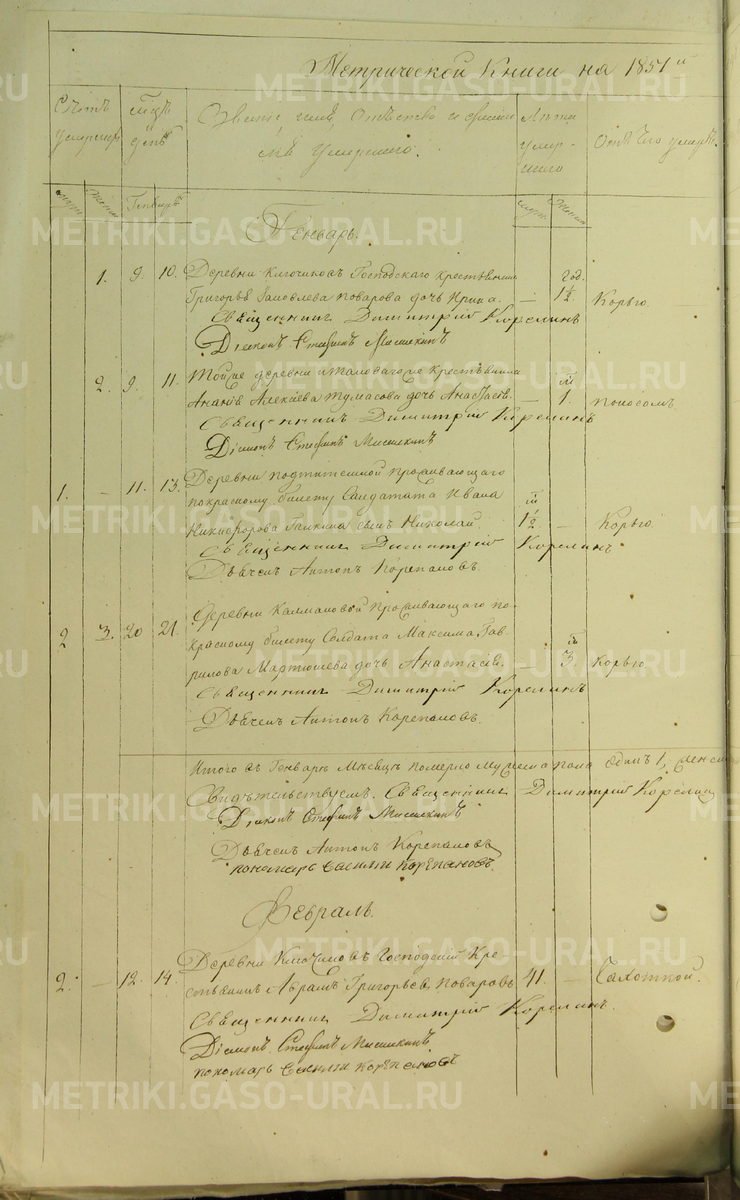 Метрической Книги на 1851й
Счетъ умершихъ
Мцъ день
Званiе, имя, Отчество и фамилiя умершаго.
Лѣта умершаго
Отъ чего умеръ.
муж. жен.
Генварь
муж. женск.
Генварь.
1. 9. 10. Деревни Ключиковъ Господскаго крестьянина год.
Григорья Поварова дочь Ирина. — 1½. Корью.
Священникъ Димитрiй Корелинъ
Дiаконъ Стефанъ Мишкинъ
2. 9. 11. Тойже деревни крестьянина м
Ананiя Алексѣева дочь Анастасiя. — 1. поносомъ
Священникъ Димитрiй Корелинъ
Дiаконъ Стефанъ Мишкинъ
1. — 11. 13. Деревни проживающаго
по красному билету Солдата Ивана м
Никифорова сынъ Николай. 1½ — Корью.
Священникъ Димитрiй Корелинъ
Дьячекъ Антонъ Корепановъ.
2 3. 20 21. Деревни Калмаковой проживающаго по
красному билету Солдата Максима Гав- м
рилова Мартюшева дочь Анастасiя. — 3. Корью
Священникъ Димитрiй Корелинъ
Дьячекъ Антонъ Корепановъ.
Итого въ Генварѣ Мѣсяцѣ померло мужеска пола Одинъ 1, женска
Свидѣтельствуемъ: Священникъ Димитрiй Корелинъ
Дiаконъ Стефанъ Мишкинъ
Дьячекъ Антонъ Корепановъ
пономарь Василiй Корепановъ.
Февраль.
2. — 12. 14. Деревни Ключиковъ Господскiй Кре-
стьянинъ Аврамъ Григорьевъ Поваровъ 41. — Чахоткой.
Священникъ Димитрiй Корелинъ.
Дiаконъ Стефанъ Мишкинъ
пономарь Василiй Корепановъ
METRIKI.GASO-URAL.RU